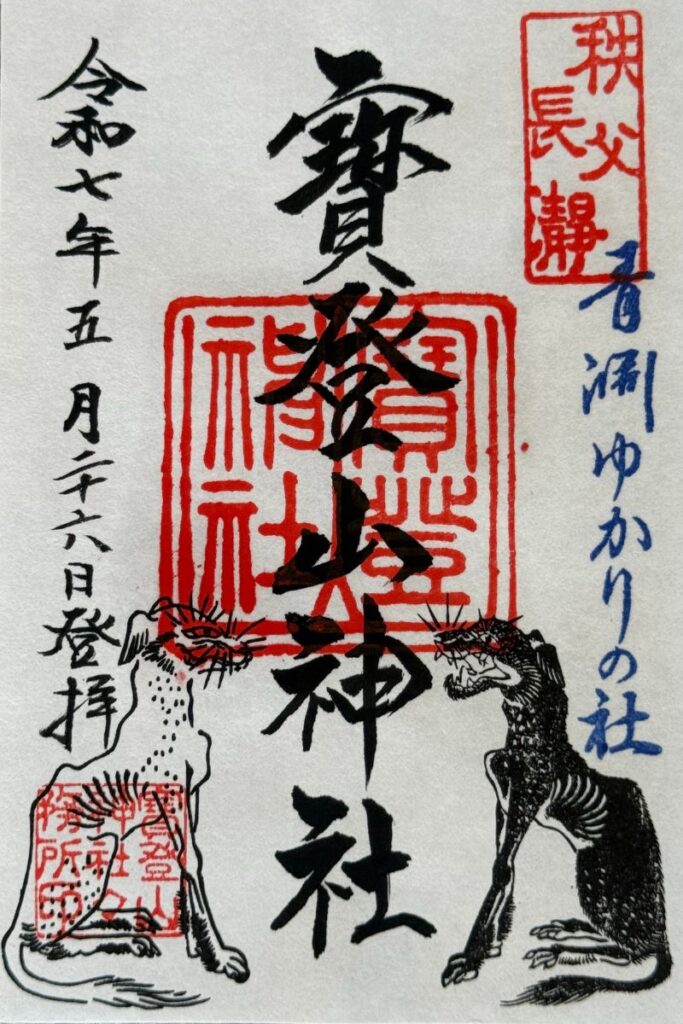 秩父
長瀞
青淵ゆかりの社
寶登山神社
寶登山
神社
令和七年五月二十六日登拝
寶登山
神社之
務所印